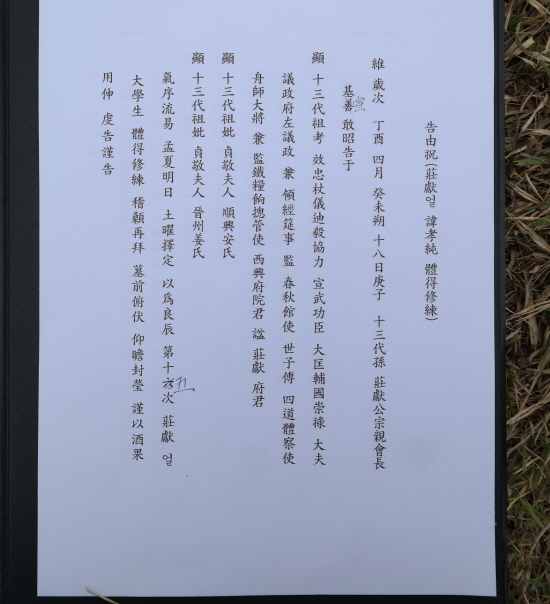 告由祝(莊獻얼 諱孝純 體得修練)
維 歲次 丁酉 四月 癸未朔 十八日庚子 十三代孫 莊獻公宗親會長
基善 敢昭告于
顯 十三代祖考 效忠杖儀迪毅協力 宣武功臣 大匡輔國崇祿 大夫
議政府左議政 兼 領經筵事 監 春秋館使 世子傅 四道體察使
舟師大將 兼 監鐵糧餉摠管使 西興府院君 諡 莊獻 府君
顯 十三代祖妣 貞敬夫人 順興安氏
顯 十三代祖妣 貞敬夫人 晉州姜氏
氣序流易 孟夏明日 土曜擇定 以爲良辰 第十六次 莊獻 얼
大學生 體得修練 稽顙再拜 墓前俯伏 仰瞻封瑩 謹以酒果
用伸 虔告謹告